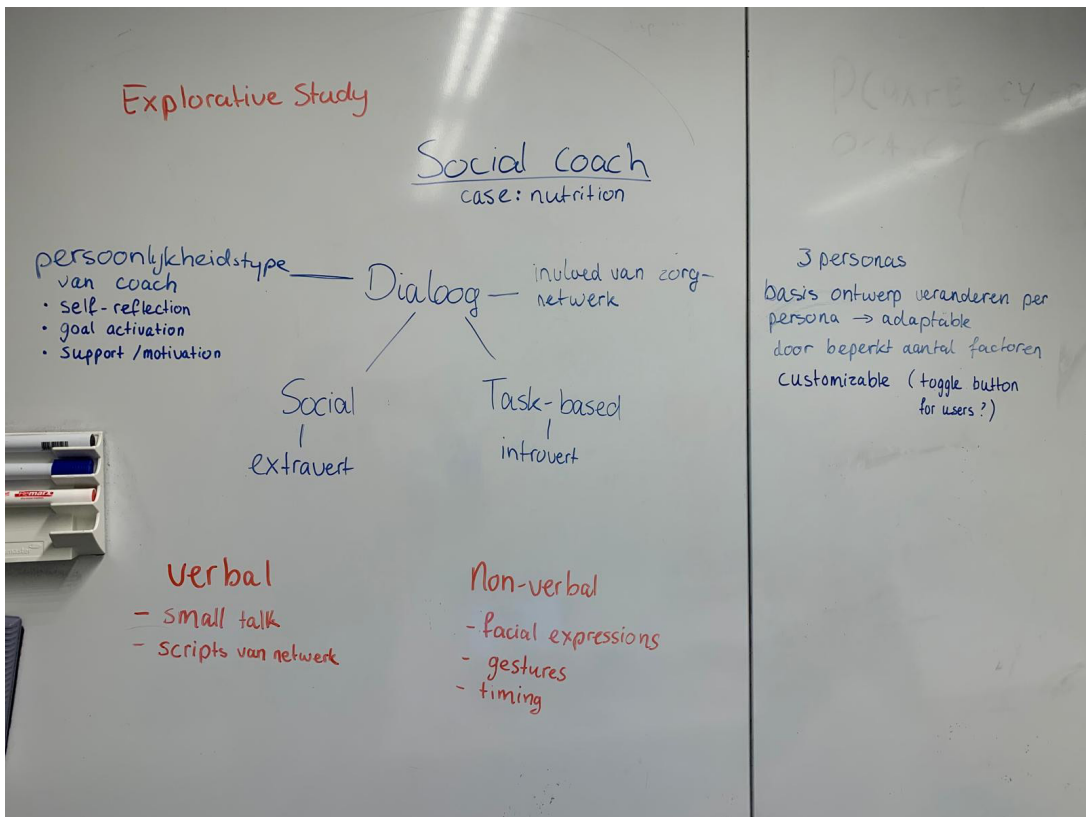 Explorative Study
Social Coach
case: nutrition
persoonlijkheidstype
van coach
• self-reflection
• goal activation
• support/motivation
Dialoog
invloed van zorg-
netwerk
Social
extravert
Task-based
introvert
verbal
- small talk
- scripts van netwerk
Non-verbal
- facial expressions
- gestures
- timing
3 personas
basis ontwerp veranderen per
persona → adaptable
door beperkt aantal factoren
customizable (toggle button
for users?)